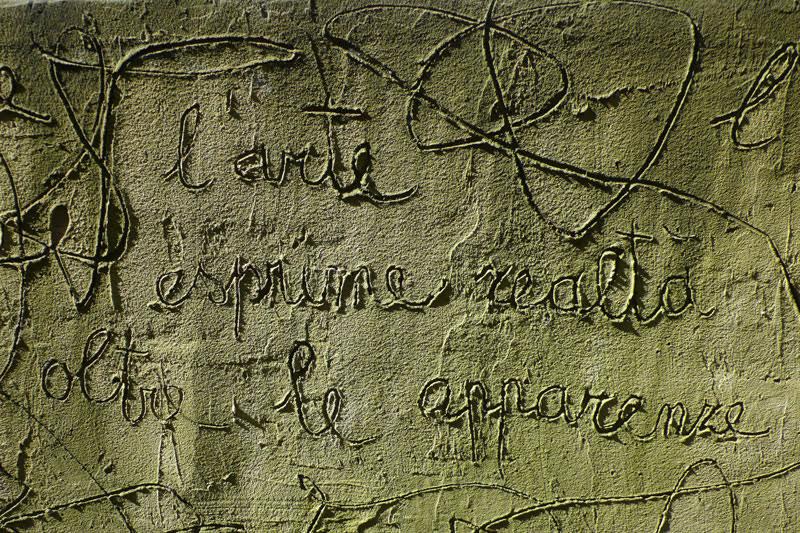 l'arte
esprime realtà
oltre le apparenze